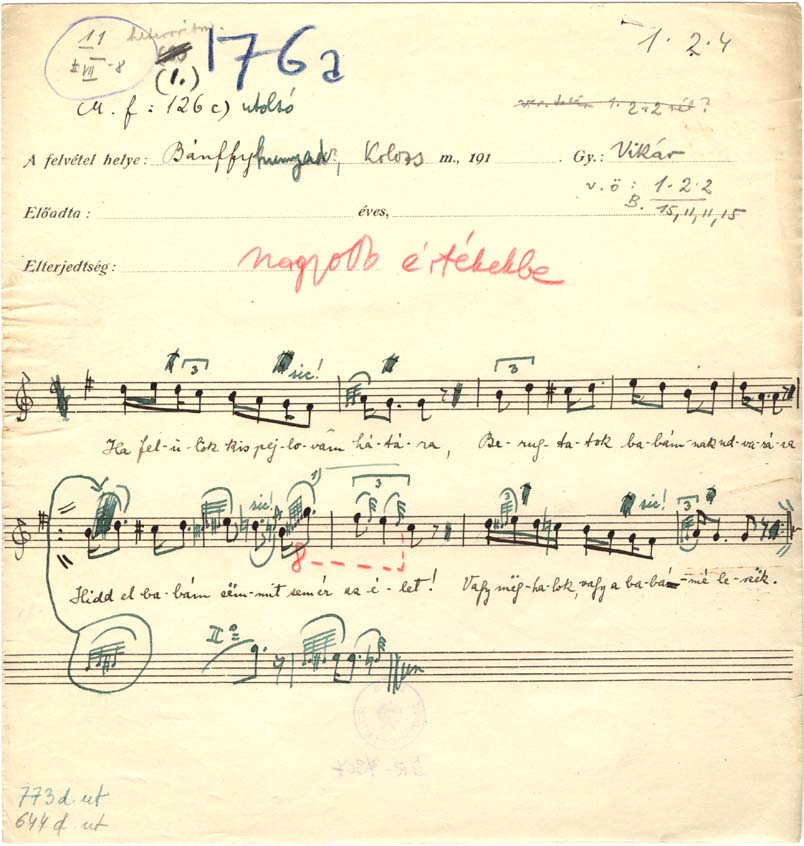 11
VII-8
176a
1. 2. 4
(1.)
M. f: 126 c) utolsó
A felvétel helye: Bánffyhunyad, Kolozs m., 191 . Gy.: Vikár
v. ö: 1. 2. 2
B. 15, 11, 11, 15
Előadta: éves,
Elterjedtség: nagyobb értékekbe
3 sic! 3
Ha fel-ü-lök kis pej-lo-vam há-tá-ra, Be-rug-ta-tok ba-bám-nak ud-va-rá-ra
sic! 1) 3 3 sic! 3
8
Hidd el ba-bám sëm-mit sem ér az é-let! Vagy mëg-ha-lok, vagy a ba-bá-mé le-szëk.
II
773 d. ut
644 d. ut